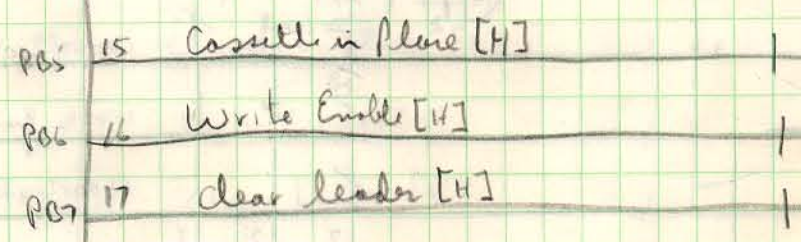 PB5 15 Cassette in Place [H]
PB6 16 Write Enable [H]
PB7 17 Clear leader [H]